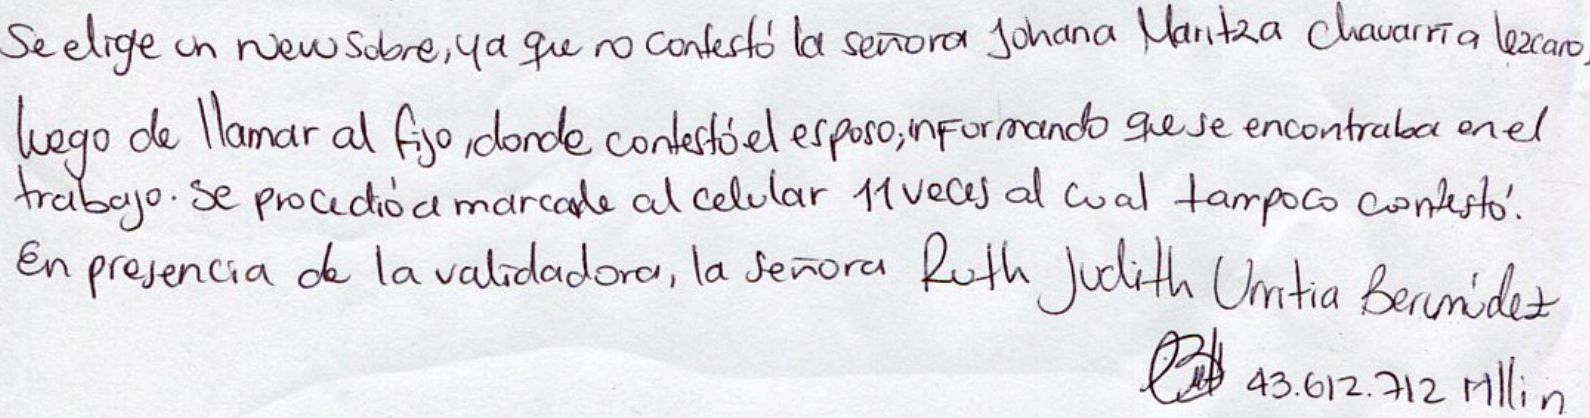 Se elige un new sobre, ya que no contestó la señora Johana Maritza Chavarría lezcano,
luego de llamar al fijo, donde contestó el esposo; informando que se encontraba en el
trabajo. Se procedió a marcarle al celular 11 veces al cual tampoco contestó.
En presencia de la validadora, la señora Ruth Judith Urrutia Bermúdez
43.612.712 Mllin